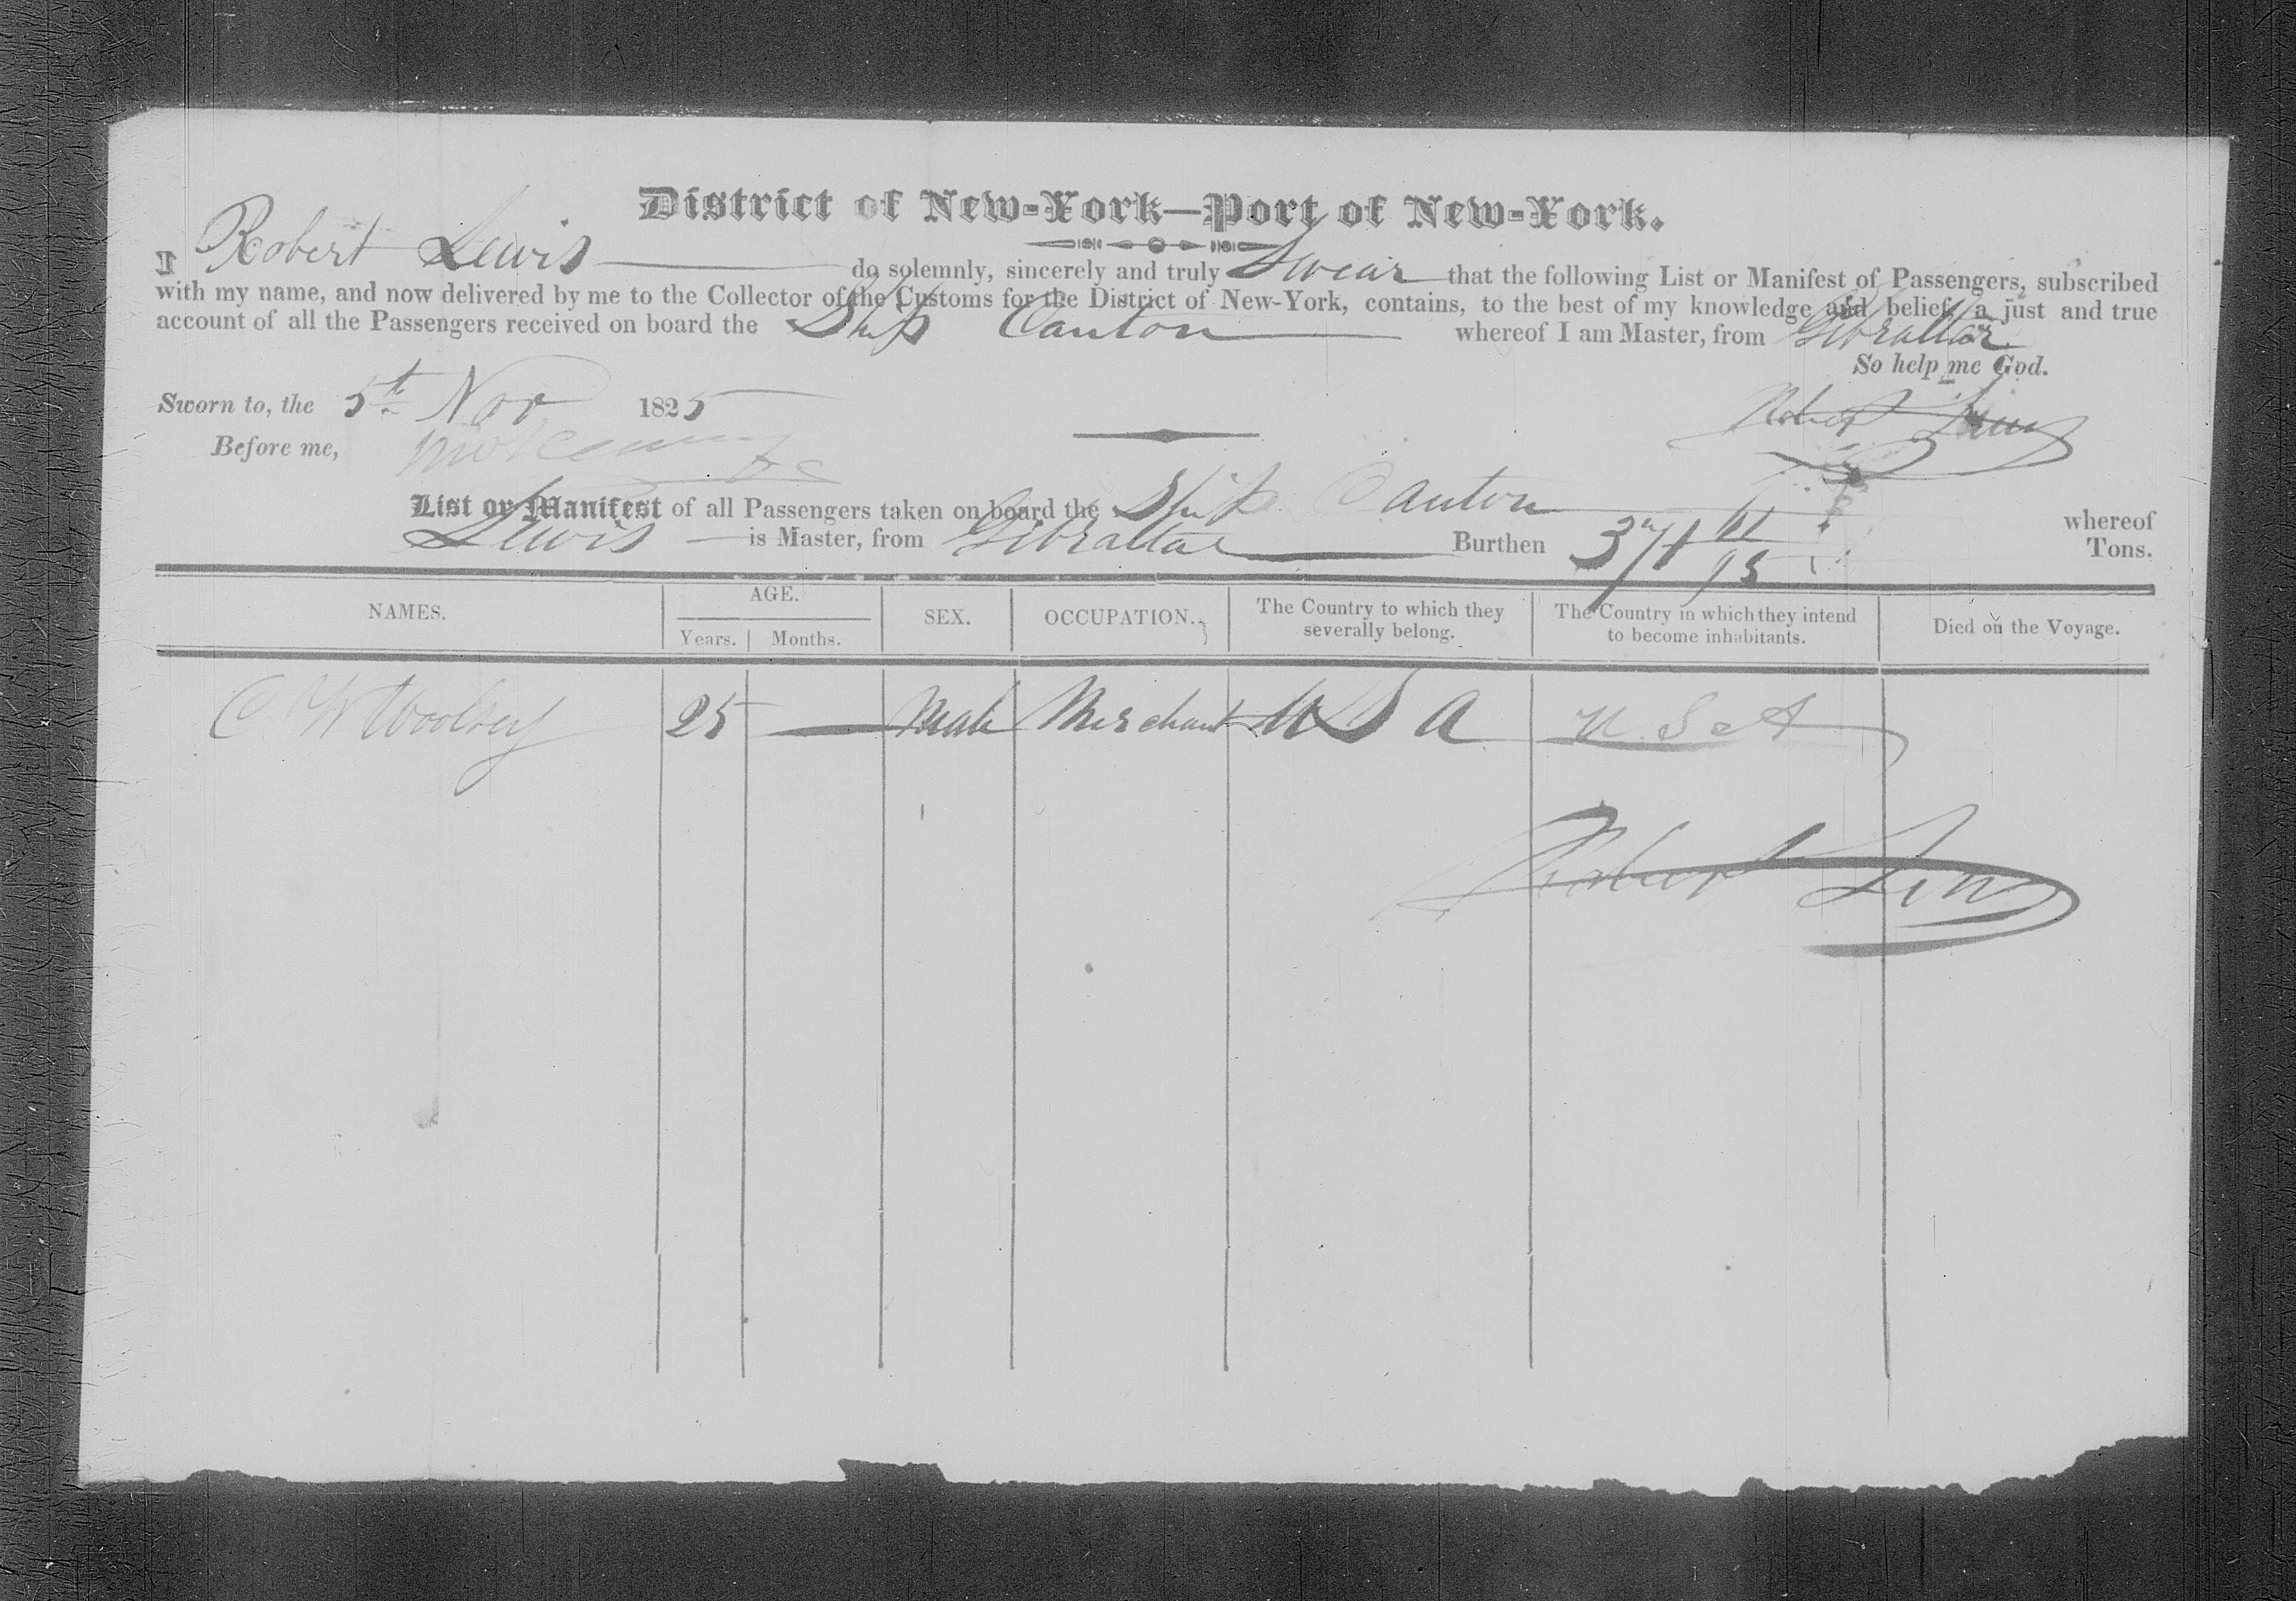 District of New-York—Port of New-York.
I Robert Lewis do solemnly, sincerely and truly Swear that the following List or Manifest of Passengers, subscribed
with my name, and now delivered by me to the Collector of the Customs for the District of New-York, contains, to the best of my knowledge and belief, a just and true
account of all the Passengers received on board the Ship Canton whereof I am Master, from Gibraltar
So help me God.
Sworn to, the 5th Nov 1825
Robert Lewis
Before me,
List or Manifest of all Passengers taken on board the Ship Canton whereof
Lewis is Master, from Gibraltar Burthen Tons.
NAMES. AGE. Years. Months. SEX. OCCUPATION. The Country to which they severally belong. The Country in which they intend to become inhabitants. Died on the Voyage.
C W Woolsey 25 — Male Merchant U S A U. S A
Robert Lewis